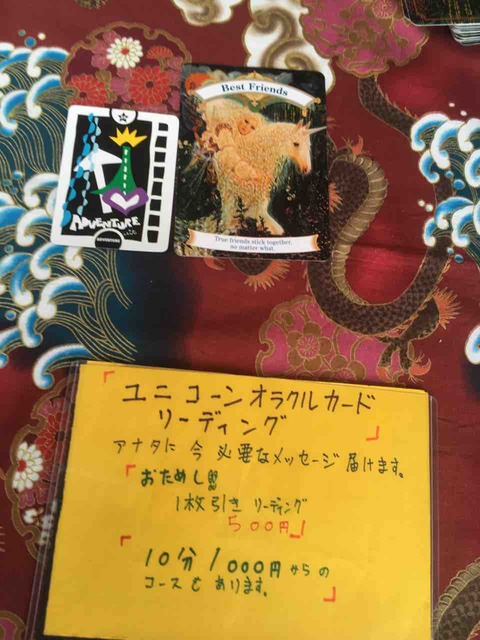 Best Friends
True friends stick together,
no matter what.
ADVENTURE
ADVENTURE
「ユニコーンオラクルカード
リーディング」
アナタに今必要なメッセージ届けます。
「おためし!!
1枚引きリーディング
500円」
「10分1000円からの
コースもあります。」